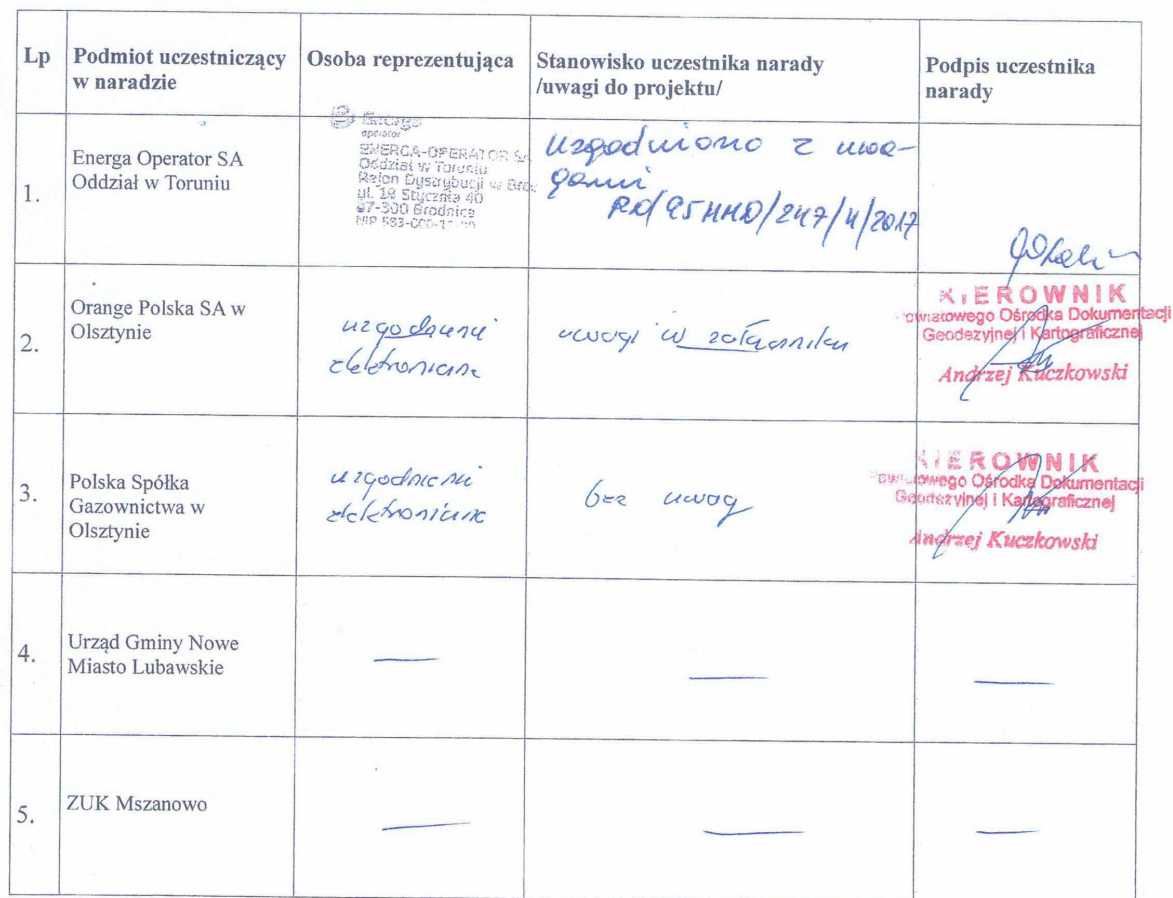 Lp
Podmiot uczestniczący
w naradzie
Osoba reprezentująca
Stanowisko uczestnika narady
/uwagi do projektu/
Podpis uczestnika
narady
1.
Energa Operator SA
Oddział w Toruniu
Energa
operator
ENERGA-OPERATOR SA
Oddział w Toruniu
Rejon Dystrybucji w
ul. 18 Stycznia 40
87-300 Brodnica
NIP 583-000-11-90
uzgodniono z uwa-
gami
RD/95HHD/247/4/2017
2.
Orange Polska SA w
Olsztynie
uzgodnienie
elektroniczne
uwagi w załączniku
KIEROWNIK
Powiatowego Ośrodka Dokumentacji
Geodezyjnej i Kartograficznej
Andrzej Kuczkowski
3.
Polska Spółka
Gazownictwa w
Olsztynie
uzgodnienie
elektroniczne
bez uwag
KIEROWNIK
Powiatowego Ośrodka Dokumentacji
Geodezyjnej i Kartograficznej
Andrzej Kuczkowski
4.
Urząd Gminy Nowe
Miasto Lubawskie
5.
ZUK Mszanowo